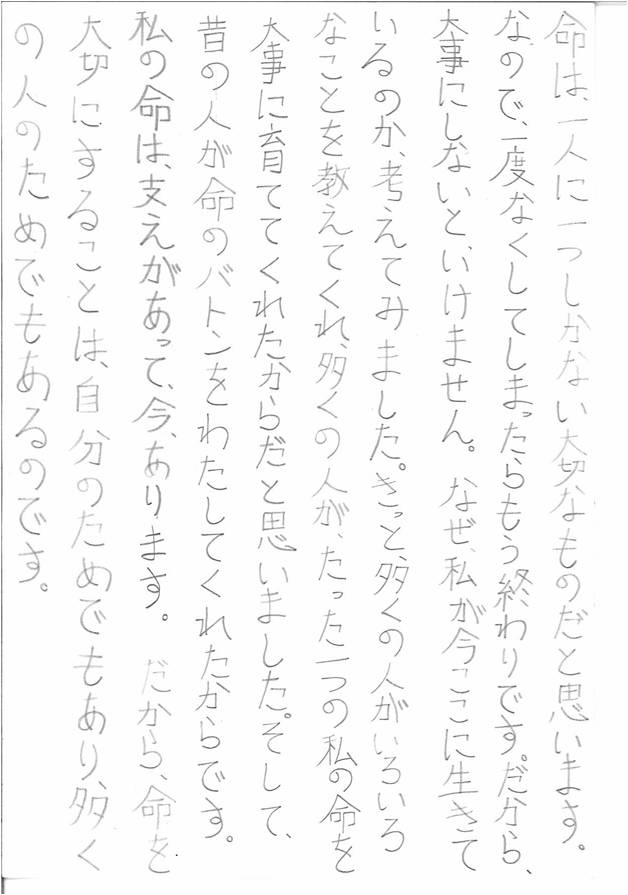 命は、一人に一つしかない大切なものだと思います。
なので、一度なくしてしまったらもう終わりです。だから、
大事にしないと、いけません。なぜ、私が今ここに生きて
いるのか、考えてみました。きっと、多くの人がいろいろ
なことを教えてくれ、多くの人が、たった一つの私の命を
大事に育ててくれたからだと思いました。そして、
昔の人が命のバトンをわたしてくれたからです。
私の命は、支えがあって、今、あります。だから、命を
大切にすることは、自分のためでもあり、多く
の人のためでもあるのです。